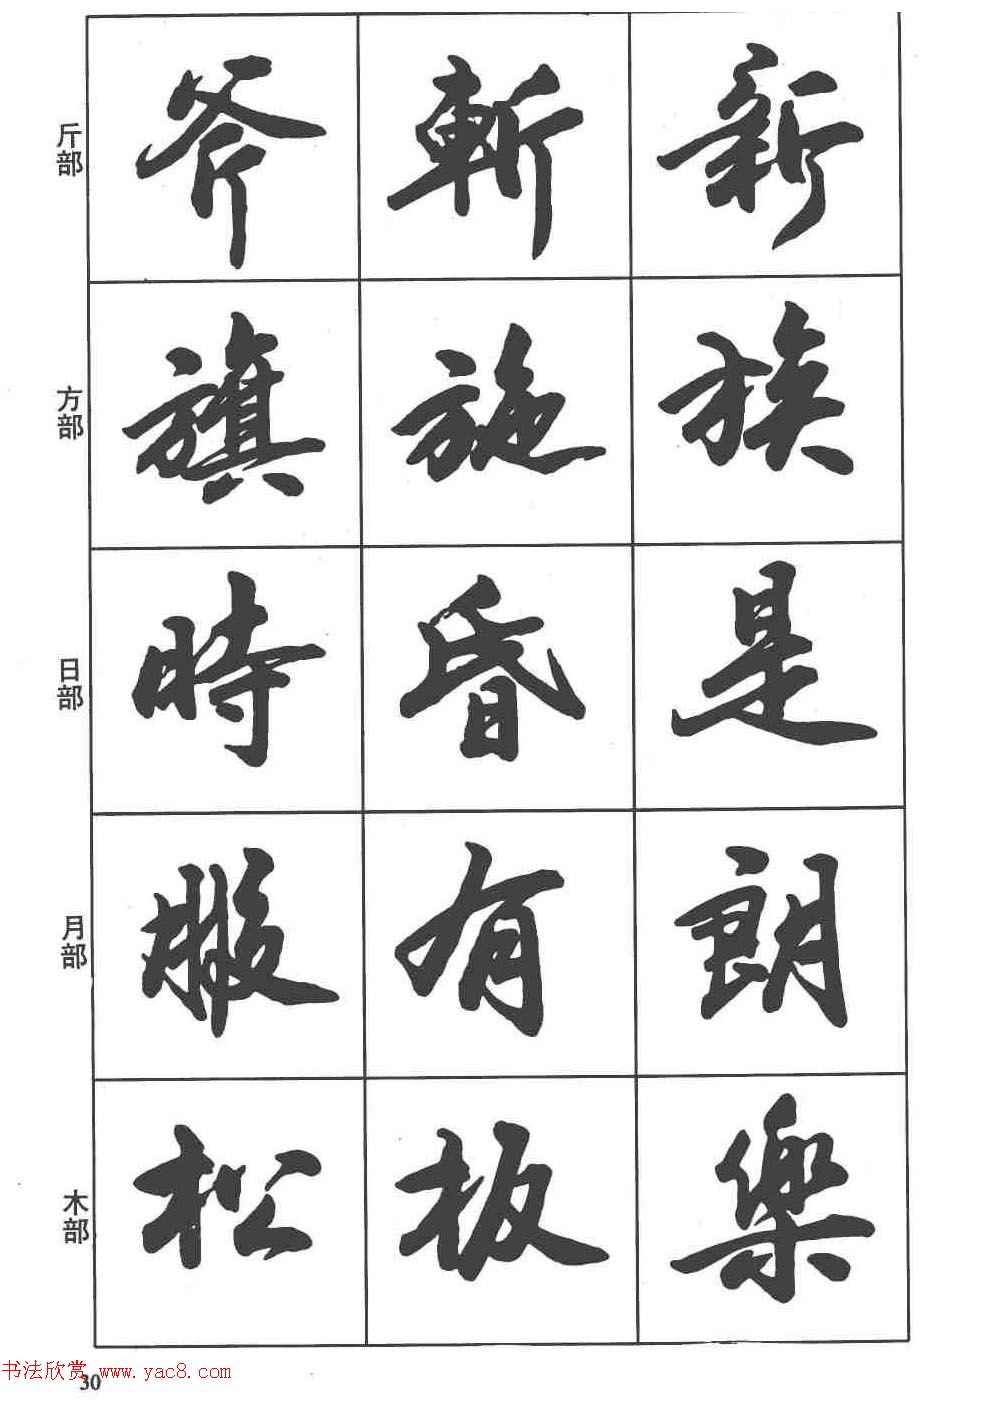 斤部 斧 斬 新
方部 旗 施 族
日部 時 昏 是
月部 服 有 朗
木部 松 板 樂
书法欣赏 www.yac8.com
30